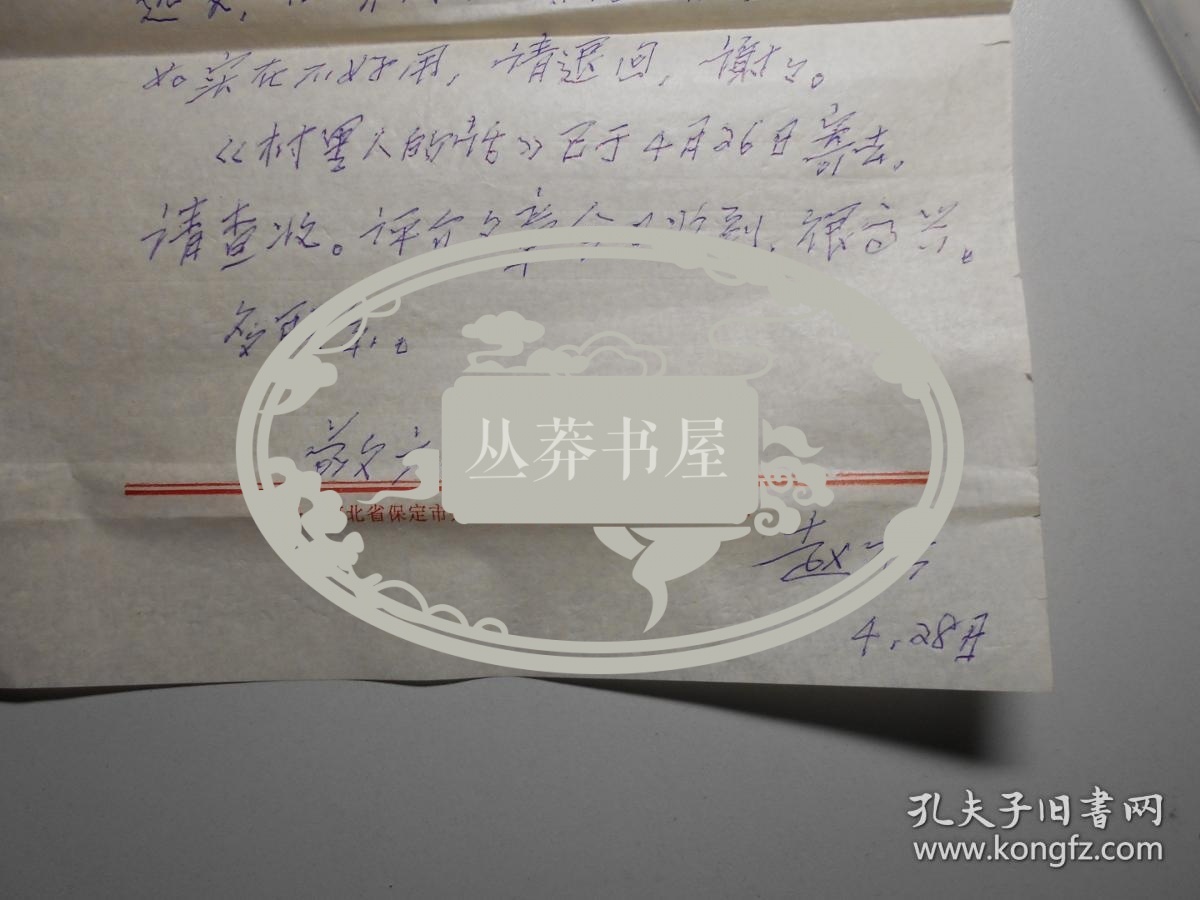 如实在不好用，请退回，谢谢。
《村里人的话》已于4月26日寄去，
请查收。评介文章今日收到，很高兴。
敬
丛莽书屋
北省保定市
赵
4.28日
孔夫子旧书网
www.kongfz.com